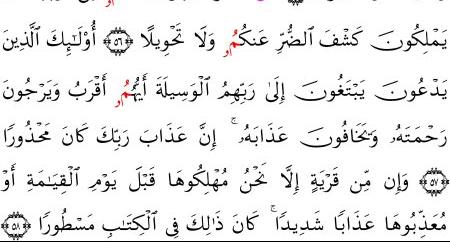 يَمْلِكُونَ كَشْفَ ٱلضُّرِّ عَنكُمُۥ وَلَا تَحْوِيلًا ﴿٥٦﴾ أُوْلَـٰٓئِكَ ٱلَّذِينَ
يَدْعُونَ يَبْتَغُونَ إِلَىٰ رَبِّهِمُ ٱلْوَسِيلَةَ أَيُّهُمُۥ أَقْرَبُ وَيَرْجُونَ
رَحْمَتَهُۥ وَيَخَافُونَ عَذَابَهُۥٓ ۚ إِنَّ عَذَابَ رَبِّكَ كَانَ مَحْذُورًا
﴿٥٧﴾ وَإِن مِّن قَرْيَةٍ إِلَّا نَحْنُ مُهْلِكُوهَا قَبْلَ يَوْمِ ٱلْقِيَـٰمَةِ أَوْ
مُعَذِّبُوهَا عَذَابًا شَدِيدًا ۚ كَانَ ذَٰلِكَ فِى ٱلْكِتَـٰبِ مَسْطُورًا ﴿٥٨﴾